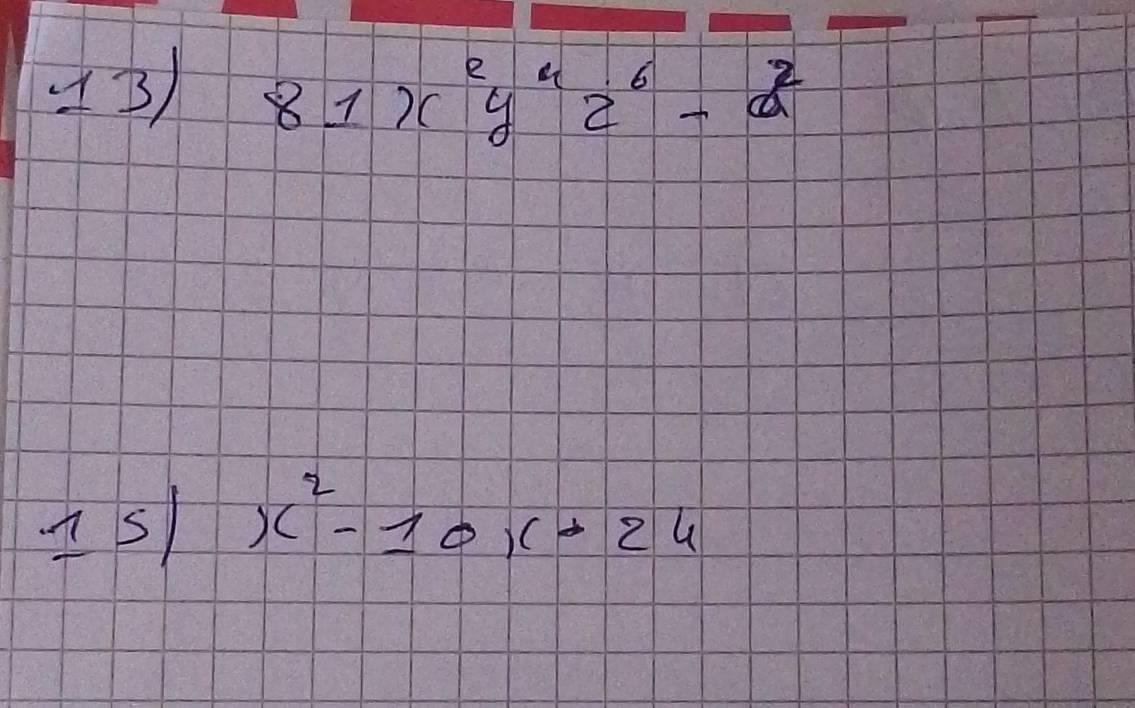 13) 81x²y⁴z⁶ - a²
15) x² - 10x + 24